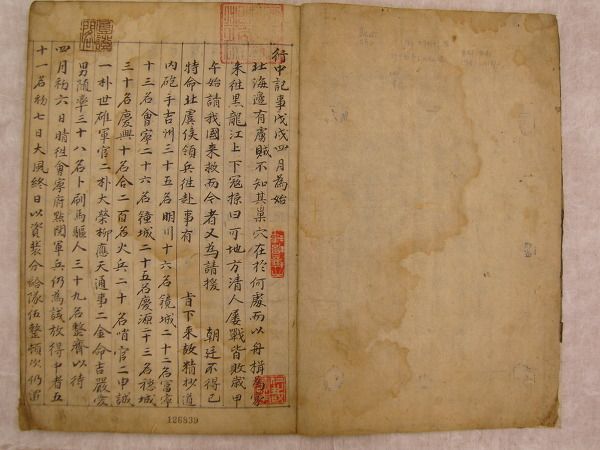 行中記事戊戌四月為始
北海邊有虜賊不知其巢穴在於何處而以舟楫為家
來往黑龍江上下寇掠曰可地方清人屢戰皆敗歲甲
午始請我國來救而今者又為請援 朝廷不得已
特命北虞侯領兵往赴事有 旨下來故精抄道
內砲手吉州三十五名明川十六名鏡城二十二名富寧
十三名會寧二十六名鍾城二十五名慶源二十三名穩城
三十名慶興十名合二百名火兵二十名哨官二申誠
一朴世雄軍官二朴大榮柳應天通事二金命吉嚴愛
男隨率三十八名卜刷馬驅人三十九名整齊以待
四月初六日時往會寧府點閱軍兵仍為試放得中者五
十一名初七日大風終日以資裝分給隊伍整頓次仍留
126839